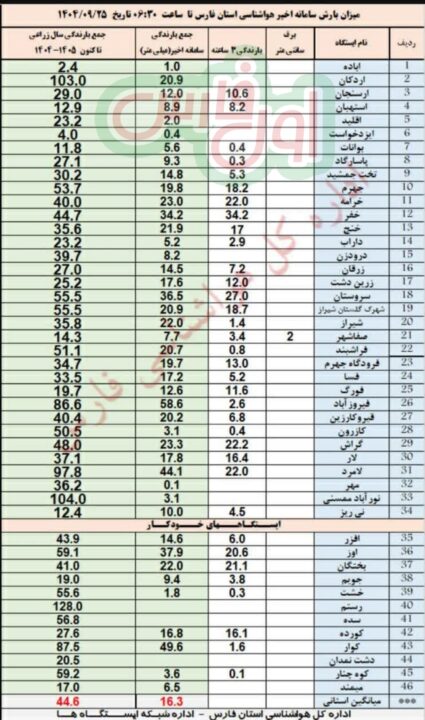 میزان بارش سامانه اخیر هواشناسی استان فارس تا ساعت ۰۶:۳۰ تاریخ ۱۴۰۴/۰۹/۲۵
ردیف نام ایستگاه برف سانتی متر بارندگی۳ ساعته جمع بارندگی سامانه اخیر(میلی متر) جمع بارندگی سال زراعی تا کنون ۱۴۰۵-۱۴۰۴
۱ آباده 1.0 2.4
۲ اردکان 20.9 103.0
۳ ارسنجان 10.6 12.0 29.0
۴ استهبان 8.2 8.9 12.9
۵ اقلید 2.0 23.2
۶ ایزدخواست 0.4 4.0
۷ بوانات 0.4 5.6 11.8
۸ پاسارگاد 0.3 9.3 27.1
۹ تخت جمشید 5.3 14.8 30.2
۱۰ جهرم 18.2 19.8 53.7
۱۱ خرامه 22.0 23.0 40.0
۱۲ خفر 34.2 34.2 44.7
۱۳ خنج 17 21.9 35.6
۱۴ داراب 2.9 5.2 23.2
۱۵ درودزن 8.2 39.7
۱۶ زرقان 7.2 14.5 27.0
۱۷ زرین دشت 12.0 17.6 25.2
۱۸ سروستان 27.0 36.5 55.5
۱۹ شهرک گلستان شیراز 18.7 20.9 55.5
۲۰ شیراز 1.4 22.0 35.8
۲۱ صفاشهر 2 3.4 7.7 14.3
۲۲ فراشبند 0.8 20.7 51.1
۲۳ فرودگاه جهرم 13.0 19.7 34.7
۲۴ فسا 5.2 17.2 33.5
۲۵ فورگ 11.6 12.6 19.7
۲۶ فیروزآباد 2.6 58.6 86.6
۲۷ قیروکارزین 6.8 20.2 40.4
۲۸ کازرون 0.4 3.1 50.5
۲۹ گراش 22.2 23.3 48.0
۳۰ لار 16.4 17.8 37.1
۳۱ لامرد 22.0 44.1 97.8
۳۲ مهر 0.1 36.2
۳۳ نورآباد ممسنی 3.1 104.0
۳۴ نی ریز 4.5 10.0 12.4
ایستگاههای خودکار
۳۵ افزر 6.0 14.6 43.9
۳۶ اوز 20.6 37.9 59.1
۳۷ بختگان 21.1 22.0 41.0
۳۸ جویم 3.8 9.4 19.0
۳۹ خشت 0.3 1.8 55.6
۴۰ رستم 128.0
۴۱ سده 56.8
۴۲ کورده 16.1 16.8 27.6
۴۳ کوار 1.6 49.6 87.5
۴۴ دشت نمدان 20.5
۴۵ کوه چنار 0.1 3.6 59.2
۴۶ میمند 6.5 17.0
*** میانگین استانی 16.3 44.6
اداره کل هواشناسی استان فارس - اداره شبکه ایستگاه ها
اول فارس
اداره کل هواشناسی فارس